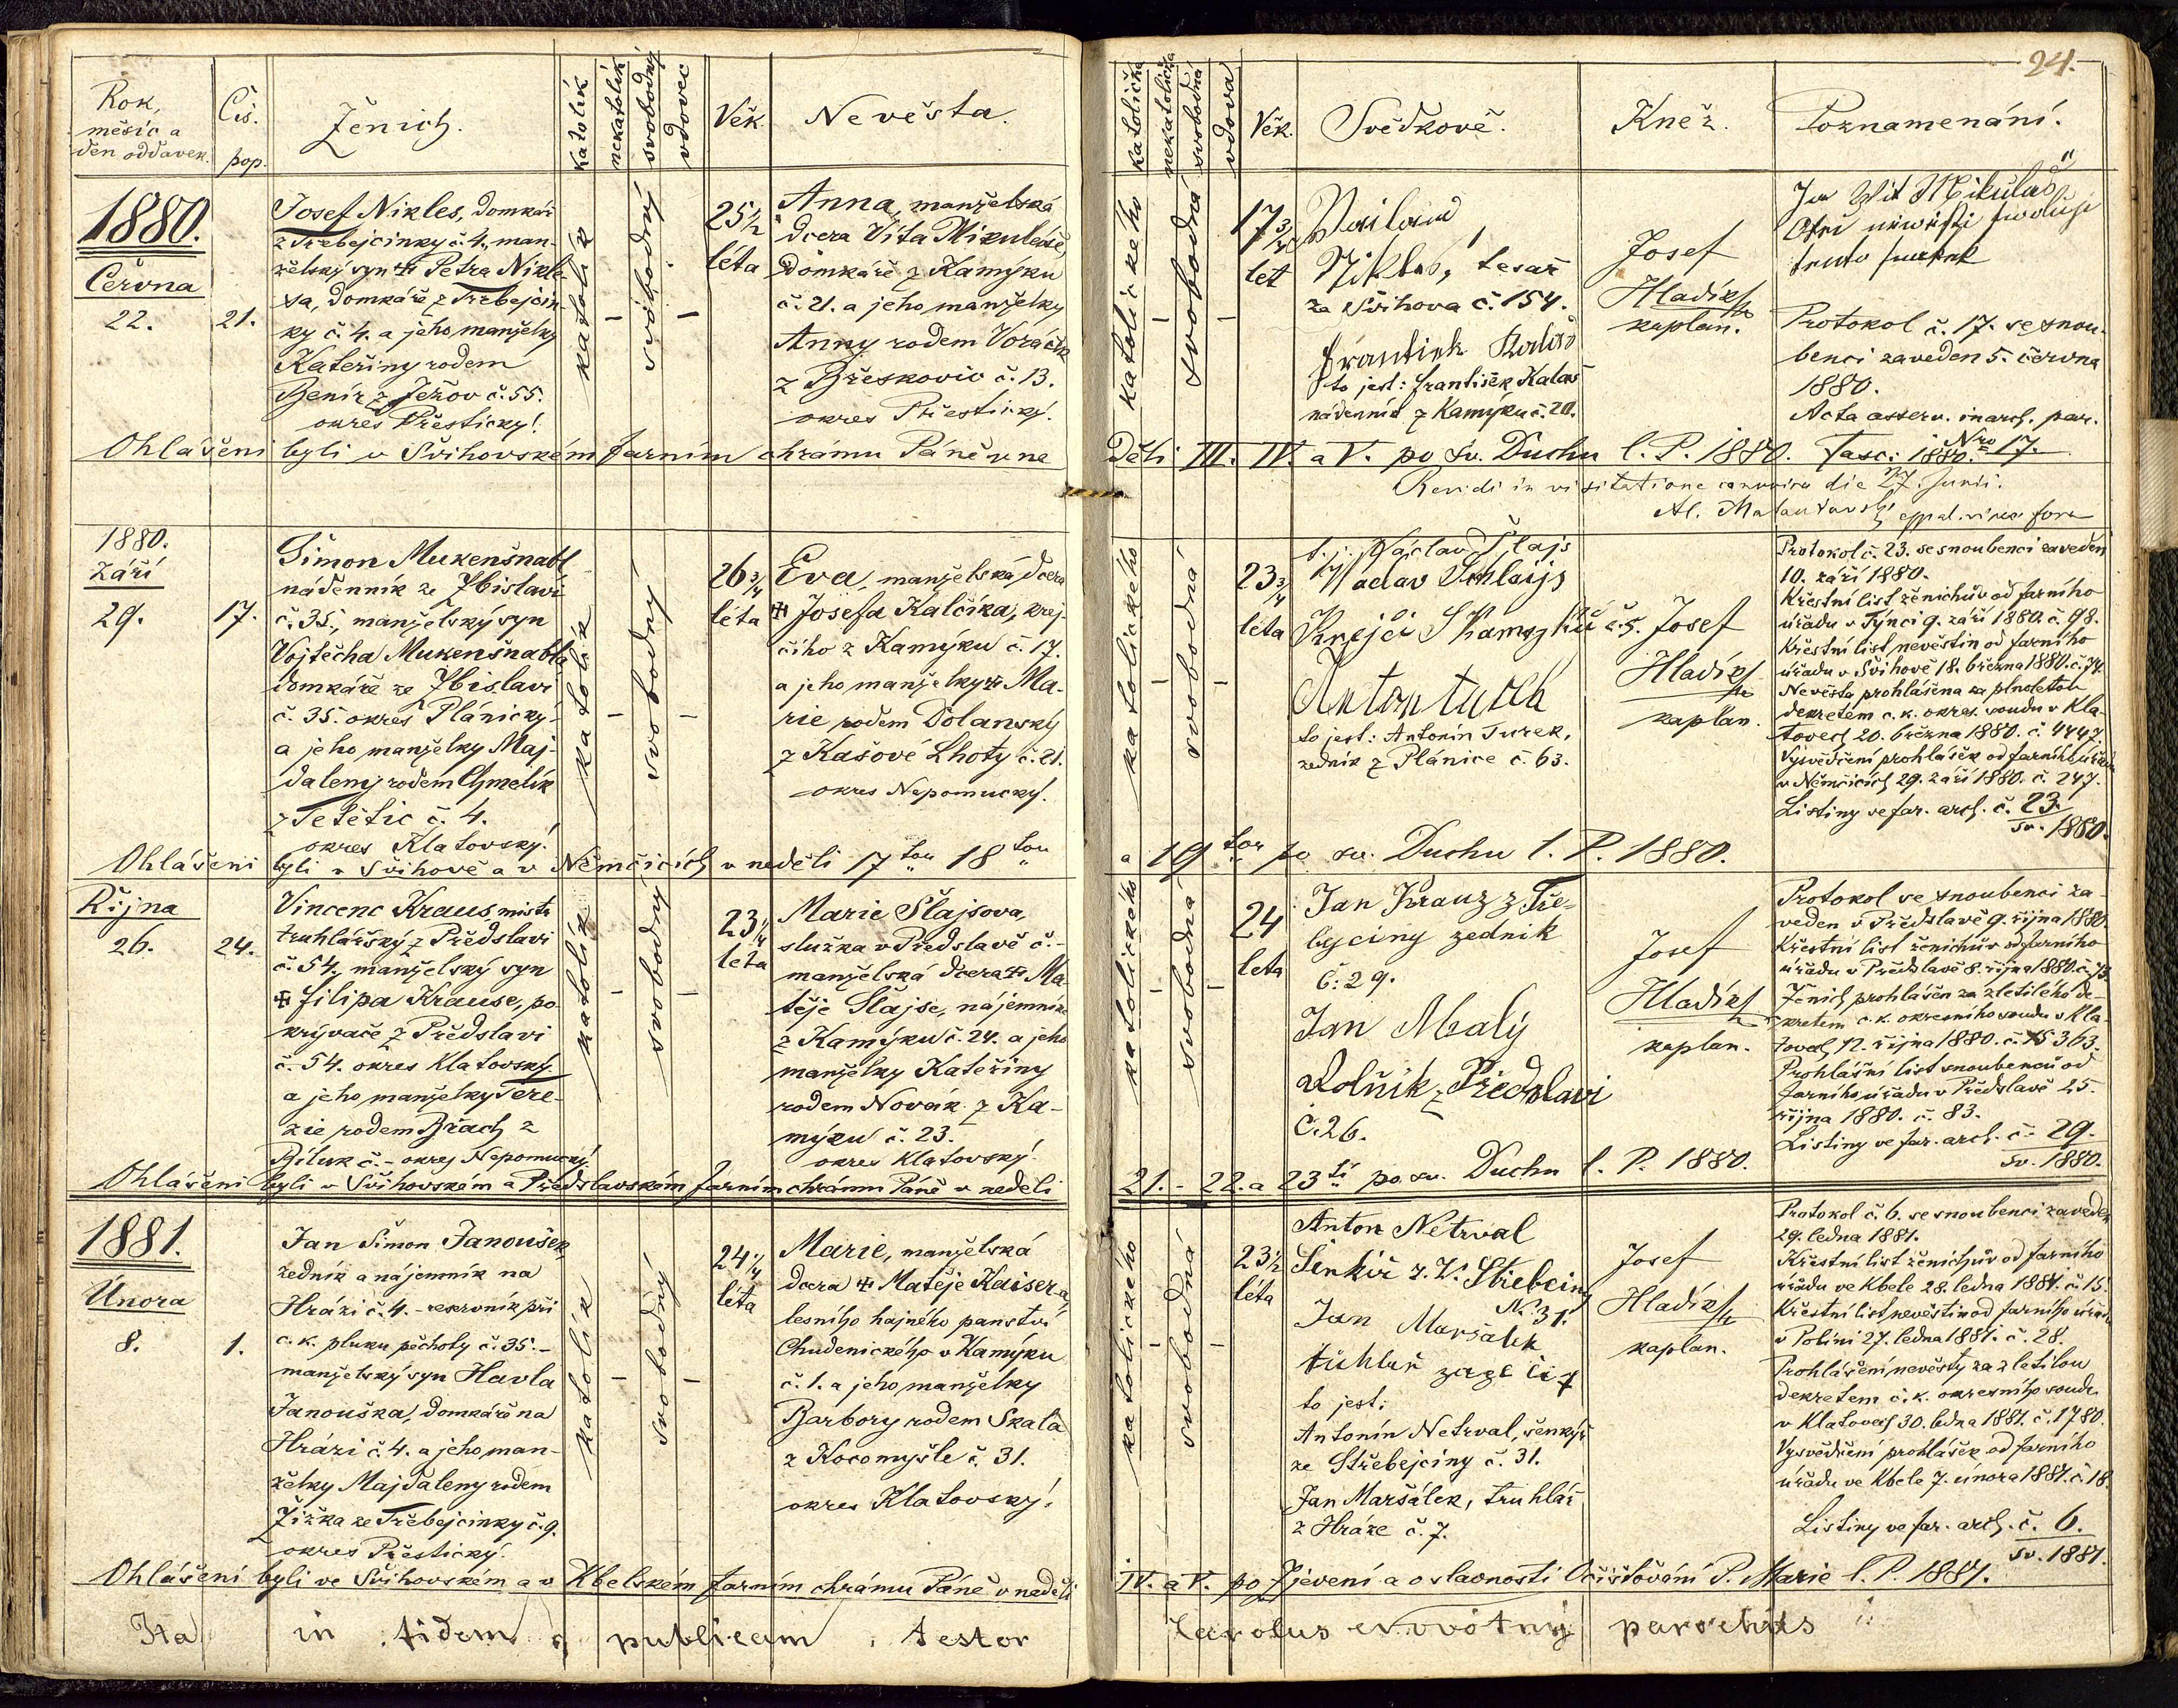 24.
Rok,
měsíc a
den oddavek.
Čís.
pop.
Ženich.
katolík
nekatolík
svobodný
vdovec
Věk.
Nevěsta.
katolička
nekatolička
svobodná
vdova
Věk.
Svědkové.
Kněz.
Poznamenání.
1880.
Června
22.
21.
Josef Nikles, domkář
z Třebejcinky č. 4., man-
želský syn ✠ Petra Nikle-
sa, domkáře z Třebejcin-
ky č. 4. a jeho manželky
Kateřiny rodem
Benír z Ježov č. 55.
okres Přestický!
katolík
–
svobodný
–
25 1/2
léta
Anna, manželská
dcera Víta Mikuleáše,
domkáře z Kamýku
č. 21. a jeho manželky
Anny rodem Voráček
z Břeskovic č. 13.
okres Přestický.
katolického
–
svobodná
–
17 3/4
let
Nikles, tesař
ze Švihova č. 154.
František Kalaš
to jest: František Kalaš
nádenník z Kamýku č. 20.
Josef
Hladík
kaplan.
Ja Wit Mikulaš
Otec newěsti swoluji
tento sňatek
Protokol č. 17. se snou-
benci zaveden 5. června
1880.
Acta asserv. in arch. par.
Fasc: 1880. Nro 17.
Ohlášeni byli v Švihovském farním chrámu Páně v ne
děli III. IV. a V. po sv. Duchu l. P. 1880.
Revidi in visitatione canonica die 27. Junii.
1880.
Září
29.
17.
Šimon Mukenšnabl
nádenník ze Zbislavi
č. 35., manželský syn
Vojtěcha Mukenšnabla
domkáře ze Zbislavi
č. 35. okres Plánický-
a jeho manželky Maj-
daleny rodem Chmelík
z Tetětic č. 4.
okres Klatovský!
katolík
–
svobodný
–
26 3/4
léta
Eva, manželská dcera
✠ Josefa Kalčíka, krej-
čího z Kamýku č. 17.
a jeho manželky ✠ Ma-
rie rodem Dolanský
z Kašové Lhoty č. 21.
okres Nepomucký.
katolického
–
svobodná
–
23 3/4
léta
t. j. Václav Šlajs
Waclav Schlaijs
Krejčí z Kamýku č. 5.
Anton turek
to jest: Antonín Turek,
zedník z Plánice č. 63.
Josef
Hladík
kaplan.
Protokol č. 23. se snoubenci zaveden
10. září 1880.
Křestní list ženichův od farního
úřadu v Týnci 9. září 1880. č. 98.
Křestní list nevěstin od farního
úřadu v Švihově 18. března 1880. č. 74.
Nevěsta prohlášena za plnoletou
dekretem c. k. okres. soudu v Kla-
tovech 20. března 1880. č. 4447.
Vysvědčení prohlášek od farního úřadu
v Němčicích 29. září 1880. č. 247.
Listiny ve far. arch. č. 23.
sv. 1880.
Ohlášeni byli v Švihově a v Němčicích v neděli 17tou 18tou
a 19tou po sv. Duchu l. P. 1880.
Října
26.
24.
Vincenc Kraus, mistr
truhlářský z Předslavi
č. 54., manželský syn
✠ Filipa Krause, po-
krývače z Předslavi
č. 54. okres Klatovský
a jeho manželky Tere-
zie rodem Brach z
Bíluk č. – okres Nepomucký.
katolík
–
svobodný
–
23 1/4
léta
Marie Šlajsova,
služka v Předslavě č. –
manželská dcera ✠ Ma-
těje Šlajse, nájemníka
z Kamýku č. 24. a jeho
manželky Kateřiny
rodem Novák z Ka-
mýku č. 23.
okres Klatovský!
katolického
–
svobodná
–
24
leta
Jan Krauz z Tře-
byciny zedník
č: 29.
Jan Malý
Rolník z Předslavi
č. 26.
Josef
Hladík
kaplan.
Protokol se snoubenci za-
veden v Předslavě 9. října 1880.
Křestní list ženichův od farního
úřadu v Předslavě 8. října 1880. č. 73.
Ženich prohlášen za zletilého de-
kretem c. k. okresního soudu v Kla-
tovech 12. října 1880. č. 15363.
Prohlášní list snoubenců od
farního úřadu v Předslavě 25.
října 1880. č. 83.
Listiny ve far. arch. č. 29.
sv. 1880.
Ohlášeni byli v Švihovském a Předslavském farním chrámu Páně v neděli
21. - 22. a 23tí po sv. Duchu l. P. 1880.
1881.
Února
8.
1.
Jan Šimon Janoušek
zedník a nájemník na
Hrázi č. 4. – reservník při
c. k. pluku pěchoty č. 35. –
manželský syn Havla
Janouška, domkáře na
Hrázi č. 4. a jeho man-
želky Majdaleny rodem
Žižka ze Třebejcinky č. 9.
okres Přestický.
katolík
–
svobodný
–
24 1/4
léta
Marie, manželská
dcera ✠ Matěje Kaisera,
lesního hajného panství
Chudenického v Kamýku
č. 1. a jeho manželky
Barbory rodem Skala
z Kocomyšle č. 31.
okres Klatovský.
katolického
–
svobodná
–
23 1/2
léta
Anton Netrval
Šenkíř z. W. Střebciny
No 31.
Jan Maršalek
to jest:
Antonín Netrval, šenkýř
ze Střebejciny č. 31.
Jan Maršálek, truhlář
z Hráze č. 7.
Josef
Hladík
kaplan.
Protokol č. 6. se snoubenci zaveden
29. ledna 1881.
Křestní list ženichův od farního
úřadu ve Kbele 28. ledna 1881. č. 15.
Křestní list nevěstin od farního úřadu
v Polini 27. ledna 1881. č. 28.
Prohlášení nevěsty za zletilou
dekretem c. k. okresního soudu
v Klatovech 30. ledna 1881. č. 1780.
Vysvědčení prohlášek od farního
úřadu ve Kbele 7. února 1881. č. 18.
Listiny ve far. arch. č. 6.
sv. 1881.
Ohlášeni byli ve Švihovském a v Kbelském farním chrámu Páně v neděli
IV. a V. po Zjevení a o slavnosti Očišťování P. Marie l. P. 1881.
Ita in fidem publicam testor Carolus Novotný parochus